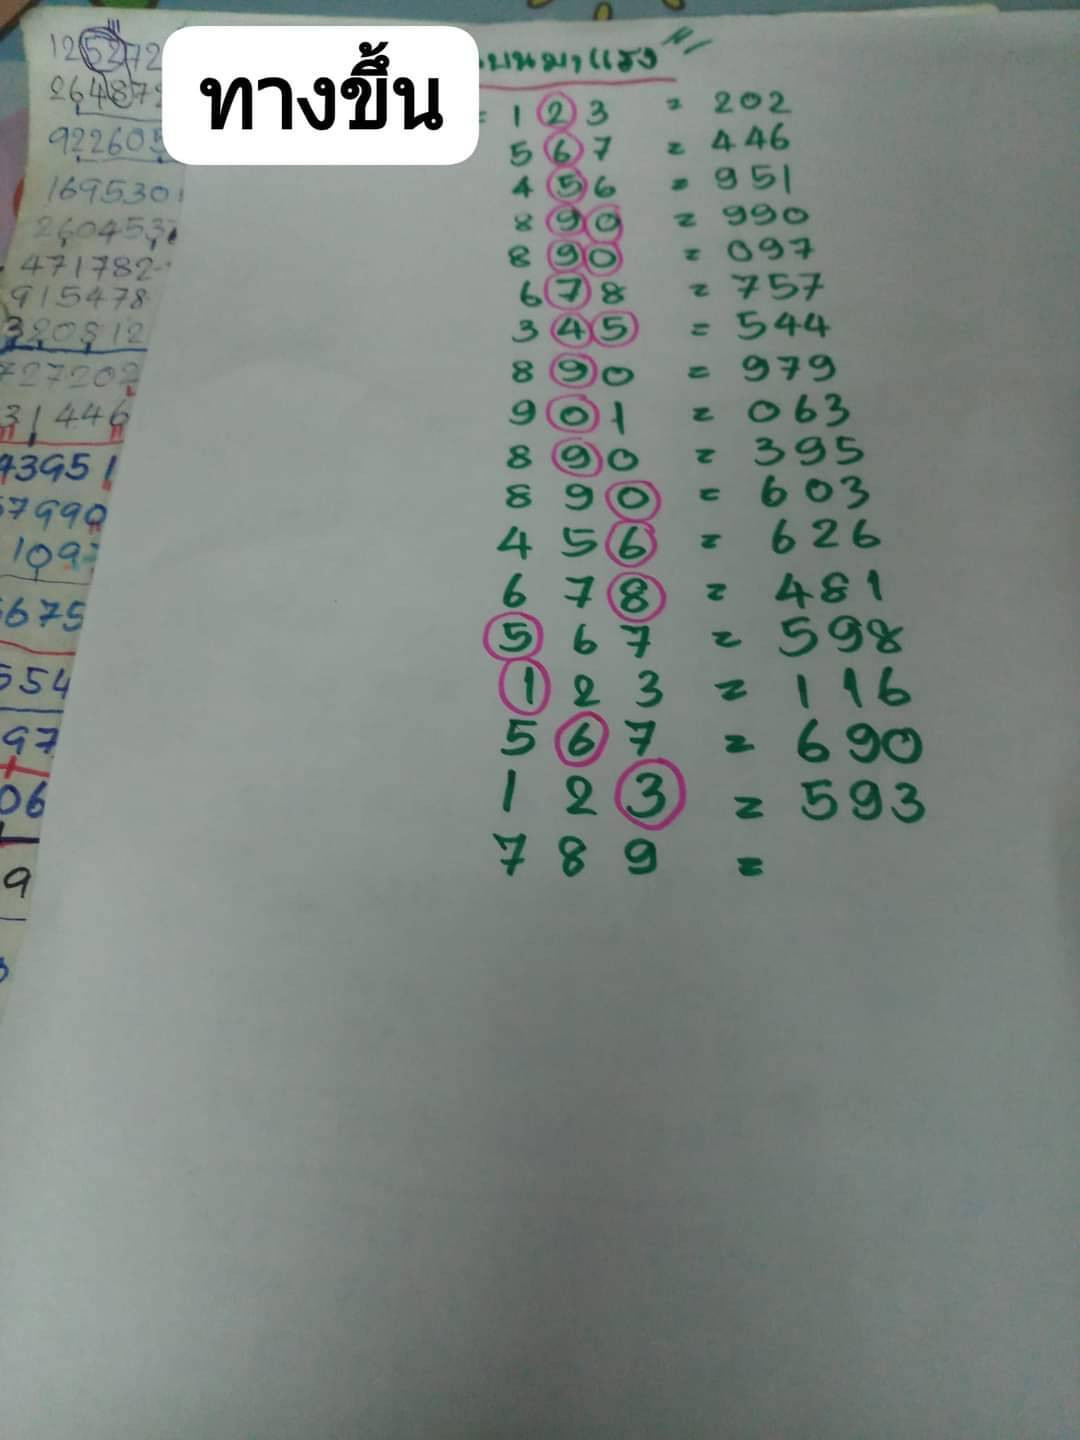 ทางขึ้น
บนมาแรง
= 1 2 3 = 202
5 6 7 = 446
4 5 6 = 951
8 9 0 = 990
8 9 0 = 097
6 7 8 = 757
3 4 5 = 544
8 9 0 = 979
9 0 1 = 063
8 9 0 = 395
8 9 0 = 603
4 5 6 = 626
6 7 8 = 481
5 6 7 = 598
1 2 3 = 116
5 6 7 = 690
1 2 3 = 593
7 8 9 =
125272
264872
922605
1695301
2604537
471782
915478
320812
727202
31446
43951
57990
1097
675
554
97
06
9